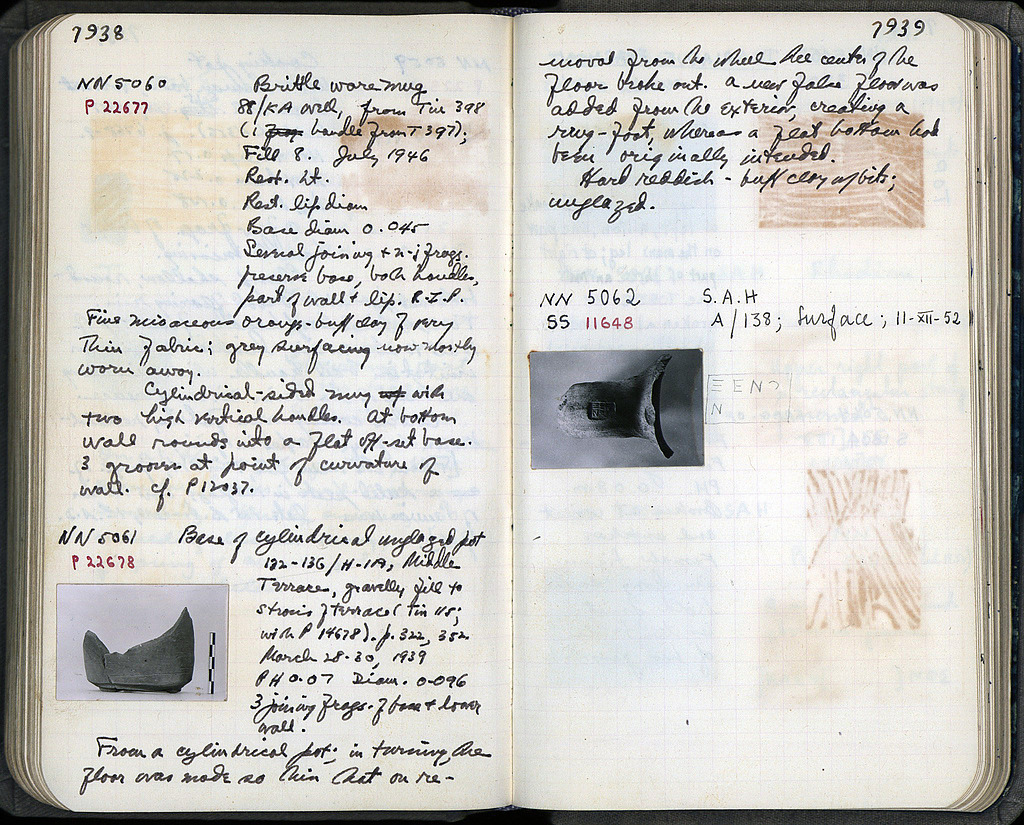 7938
NN 5060 Brittle ware mug
P 22677 88/KA well, from Tin 398
(1 frag handle from T 397);
Fill 8. July 1946
Rest. ht.
Rest. lip diam
Base diam 0.045
Several joining + n-j frags.
preserve base, both handles,
part of wall + lip. R.I.P.
Fine micaceous orange-buff clay of very
thin fabric; grey surfacing now mostly
worn away.
Cylindrical-sided mug with
two high vertical handles. At bottom
wall rounds into a flat off-set base.
3 grooves at point of curvature of
wall. cf. P12037.
NN 5061 Base of cylindrical unglazed pot
P 22678 132-136/H-19, Middle
Terrace, gravelly fill to
of terrace (Tin 115;
with P 14678). p. 322, 352
March 28-30, 1939
PH 0.07 Diam. 0.096
3 joining frags. of base + lower
wall.
From a cylindrical pot; in turning, the
floor was made so thin that on re-
7939
moval from the wheel the center of the
floor broke out. A new false floor was
added from the exterior, creating a
ring-foot, whereas a flat bottom had
been originally intended.
Hard reddish-buff clay w bits;
unglazed.
NN 5062 S.A.H
SS 11648 A/138; Surface; 11-XII-52